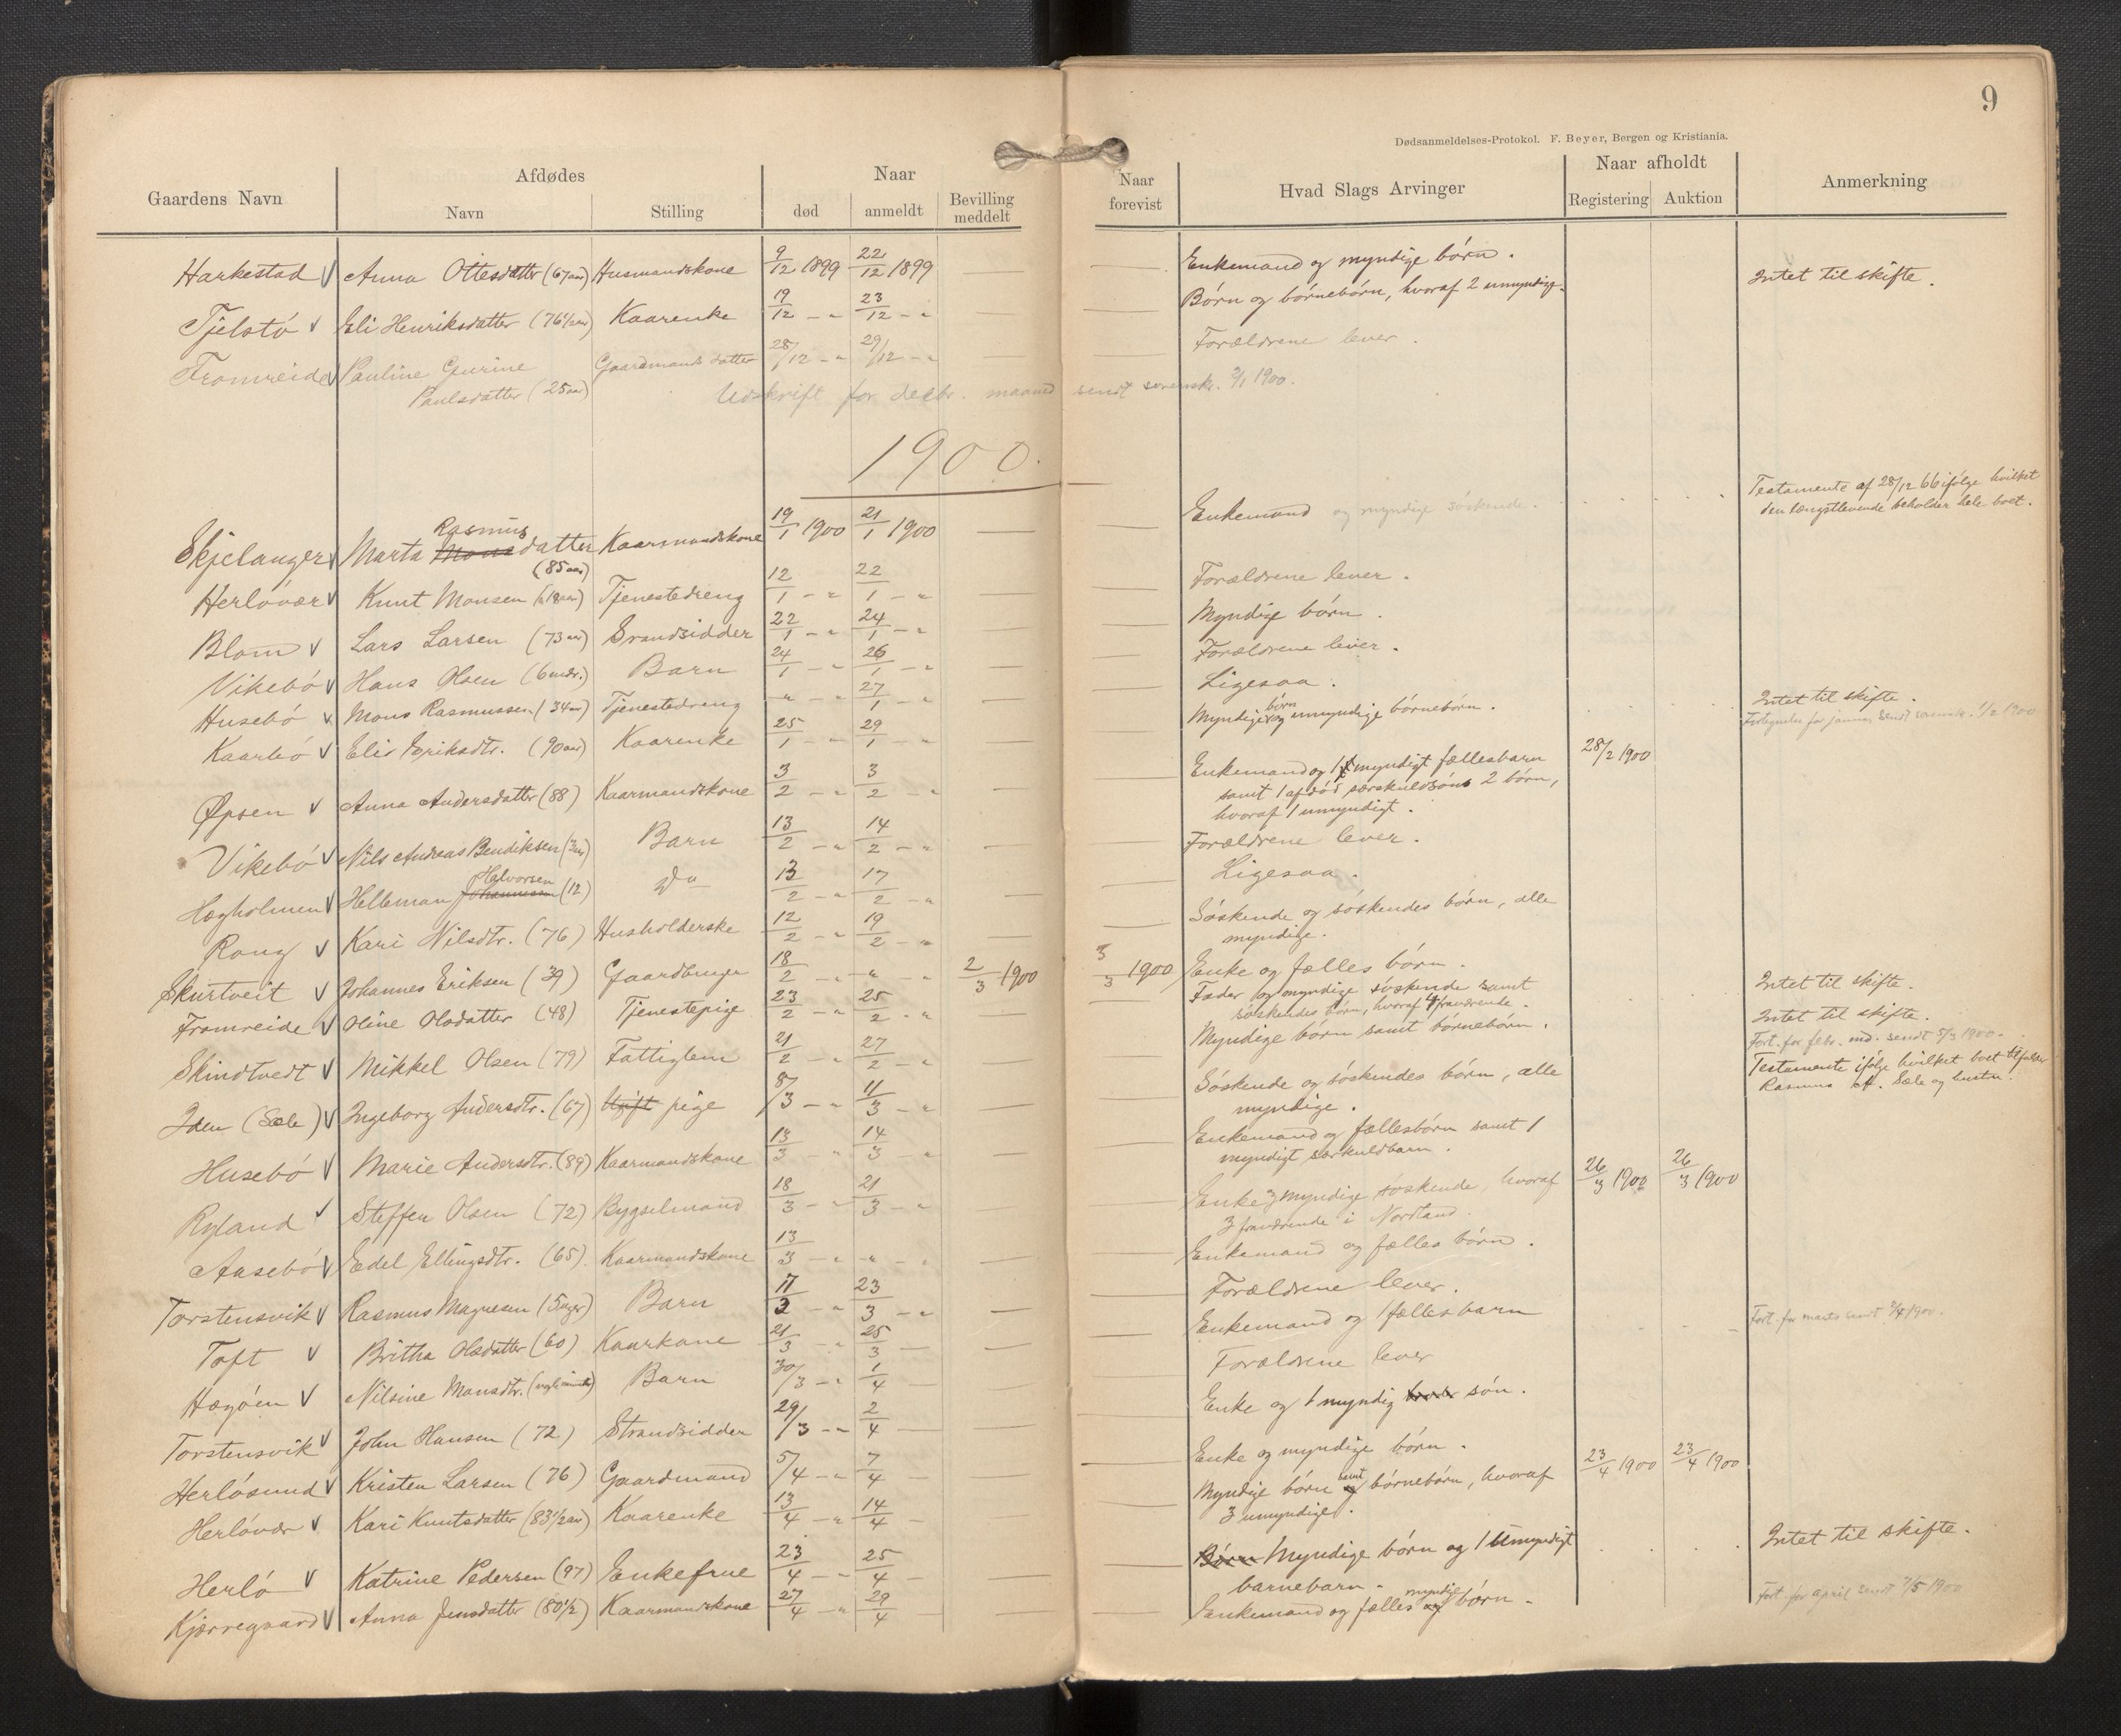 9
Dødsanmeldelses-Protokol. F. Beyer, Bergen og Kristiania.
Gaardens Navn | Afdødes | Naar | Naar forevist | Hvad Slags Arvinger | Naar afholdt | Anmerkning
Navn | Stilling | død | anmeldt | Bevilling meddelt | Registering | Auktion
Harkestad √ Anna Ottesdatter (67 aar) Husmandskone 9/12 1899 22/12 1899 — Enkemand og myndige børn. Intet til skifte.
Tjelstø √ Eli Henriksdatter (76 1/2 aar) Kaarenke 19/12 - " 23/12 - " — — Børn og børnebørn, hvoraf 2 umyndige.
Fromreide √ Pauline Gurine Gaardmands datter 28/12 - " 29/12 - " — — Forældrene lever.
Paulsdatter (25 aar)
Udskrift for decbr. maaned sendt sorenskr. 2/1 1900.
1900.
Testamente af 28/12 66 ifølge hvilket
den længstlevende beholder hele boet.
Rasmus
Skjelanger √ Marta Monsdatter Kaarmandskone 19/1 1900 21/1 1900 — — Enkemand og myndige søskende.
(85 aar)
Herløvær √ Knut Monsen (18 aar) Tjenestedreng 12/1 - " 22/1 - " — — Forældrene lever.
Blom √ Lars Larsen (73 aar) Strandsidder 22/1 - " 24/1 - " — — Myndige børn.
Vikebø √ Hans Olsen (6 mdr.) Barn 24/1 - " 26/1 - " — — Forældrene lever.
Husebø √ Mons Rasmussen (34 aar) Tjenestedreng " - " 27/1 - " — — Ligesaa. Intet til skifte.
Kaarbø √ Elis Eriksdtr. (90 aar) Kaarenke 25/1 - " 29/1 - " — — Myndige børn og umyndige børnebørn. Fortegnelse for januar sendt sorenskr. 1/2 1900
Øpsen √ Anna Andersdatter (88) Kaarmandskone 3/2 - " 3/2 - " — — Enkemand og 1 myndigt fællesbarn 28/2 1900
samt 1 afdød særskuldsøns 2 børn,
hvoraf 1 umyndigt.
Vikebø √ Nils Andreas Bendiksen (3 aar) Barn 13/2 - " 14/2 - " — — Forældrene lever.
Halvorsen
Hægholmen √ Helleman Johannessen (12) Do 13/2 - " 17/2 - " — — Ligesaa.
Rong √ Kari Nilsdtr. (76) Husholderske 12/2 - " 19/2 - " — — Søskende og søskendes børn, alle
myndige.
Skurtveit √ Johannes Eriksen (39) Gaardbruger 18/2 - " " - " 2/3 1900 3/3 1900 Enke og fælles børn.
Fromreide √ Oline Olsdatter (48) Tjenestepige 23/2 - " 25/2 - " — — Fader og myndige søskende samt Intet til skifte.
søskendes børn, hvoraf 4 fraværende.
Skindtvedt √ Mikkel Olsen (79) Fattiglem 21/2 - " 27/2 - " — — Myndige børn samt børnebørn. Intet til skifte.
Fort. for febr. md. sendt 5/3 1900.
Iden (Sæle) √ Ingeborg Andersdtr. (67) Ugift pige 8/3 - " 11/3 - " — — Søskende og søskendes børn, alle
myndige.
Testamente ifølge hvilket boet tilfalder
Rasmus A. Sæle og hustru.
Husebø √ Marie Andersdtr. (89) Kaarmandskone 13/3 - " 14/3 - " — — Enkemand og fællesbørn samt 1
myndigt særkuldbarn.
Ryland √ Steffen Olsen (72) Bygselmand 18/3 - " 21/3 - " — — Enke & myndige søskende, hvoraf 26/3 1900 26/3 1900
3 fraværende i Nordland.
Aasebø √ Edel Ellingsdtr. (65) Kaarmandskone 13/3 - " " - " — — Enkemand og fælles børn.
Torstensvik √ Rasmus Magnesen (5 uger) Barn 17/3 - " 23/3 - " — — Forældrene lever.
Toft √ Britha Olsdatter (60) Kaarkone 21/3 - " 25/3 — — — Enkemand og 1 fællesbarn Fort. for marts sendt 2/4 1900.
Hægøen √ Nilsine Monsdtr. Barn 30/3 - " 1/4 — — — Forældrene lever
Torstensvik √ John Hansen (72) Strandsidder 29/3 - " 2/4 — — — Enke og 1 myndig søn.
Herløsund √ Kristen Larsen (76) Gaardmand 5/4 - " 7/4 — — — Enke og myndige børn. 23/4 1900 23/4 1900
Herløvær √ Kari Knutsdatter (83 1/2 aar) Kaarenke 13/4 - " 14/4 — — — Myndige børn samt børnebørn, hvoraf
3 umyndige.
Herlø √ Katrine Pedersen (97) Enkefrue 23/4 - " 25/4 — — — Børn Myndige børn og 1 umyndigt Intet til skifte.
barnebarn.
Kjærregaard √ Anna Jensdatter (80 1/2) Kaarmandskone 27/4 - " 29/4 — — Enkemand og fælles myndige børn. Fort. for april sendt 1/5 1900